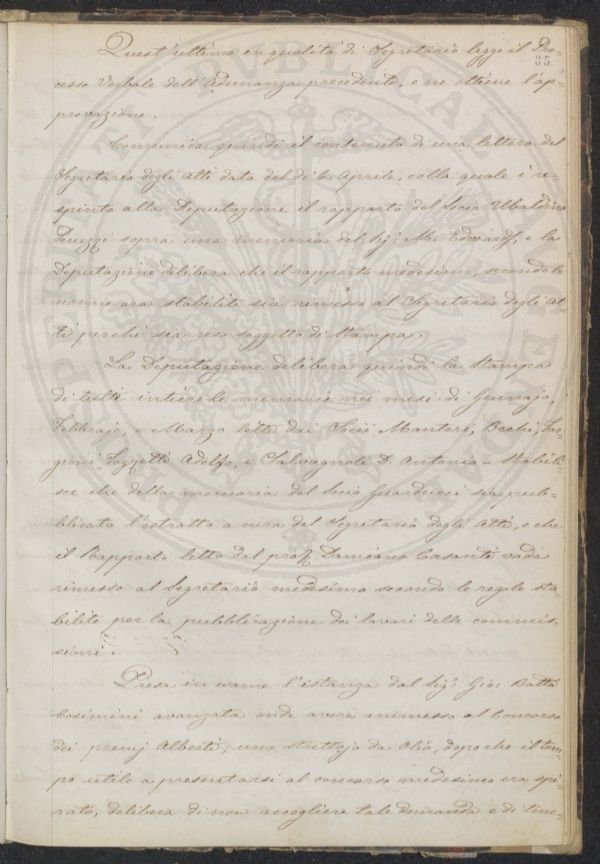 35
Quest'ultimo in qualità di Segretario legge il Pro-
cesso Verbale dell'Adunanza precedente, e ne ottiene l'ap-
provazione.
Comunica quindi il contenuto di una lettera del
Segretario degli Atti data del dì 6 Aprile, colla quale è re-
spinto alla Deputazione il rapporto del Socio Ubaldino
Peruzzi sopra una memoria del Sig: M. Edwards, e la
Deputazione delibera che il rapporto medesimo, secondo le
norme ora stabilite sia rimesso al Segretario degli At
ti perchè sia reso soggetto di Stampa.
La Deputazione delibera quindi la Stampa
di tutte intiere le memorie nei mesi di Gennajo,
Febbrajo e Marzo lette dai Socii Manteri, Bechi, Tar-
gioni Tozzetti Adolfo, e Salvagnoli D. Antonio - Stabili-
sce che della memoria del Socio Guarducci sia pub-
blicato l'estratto a cura del Segretario degli Atti, e che
il Rapporto letto dal prof. Damiano Casanti vada
rimesso al Segretario medesimo secondo le regole sta-
bilite per la pubblicazione dei lavori delle commis-
sioni.
Presa in esame l'istanza dal Sig: Gio: Batta
Cosimini avanzata onde avere ammesso al Concorso
dei premj Alberti, uno strettojo da Olio, dopo che il tem-
po utile a presentarsi al concorso medesimo era spi-
rato, delibera di non accogliere tale domanda e di tene-